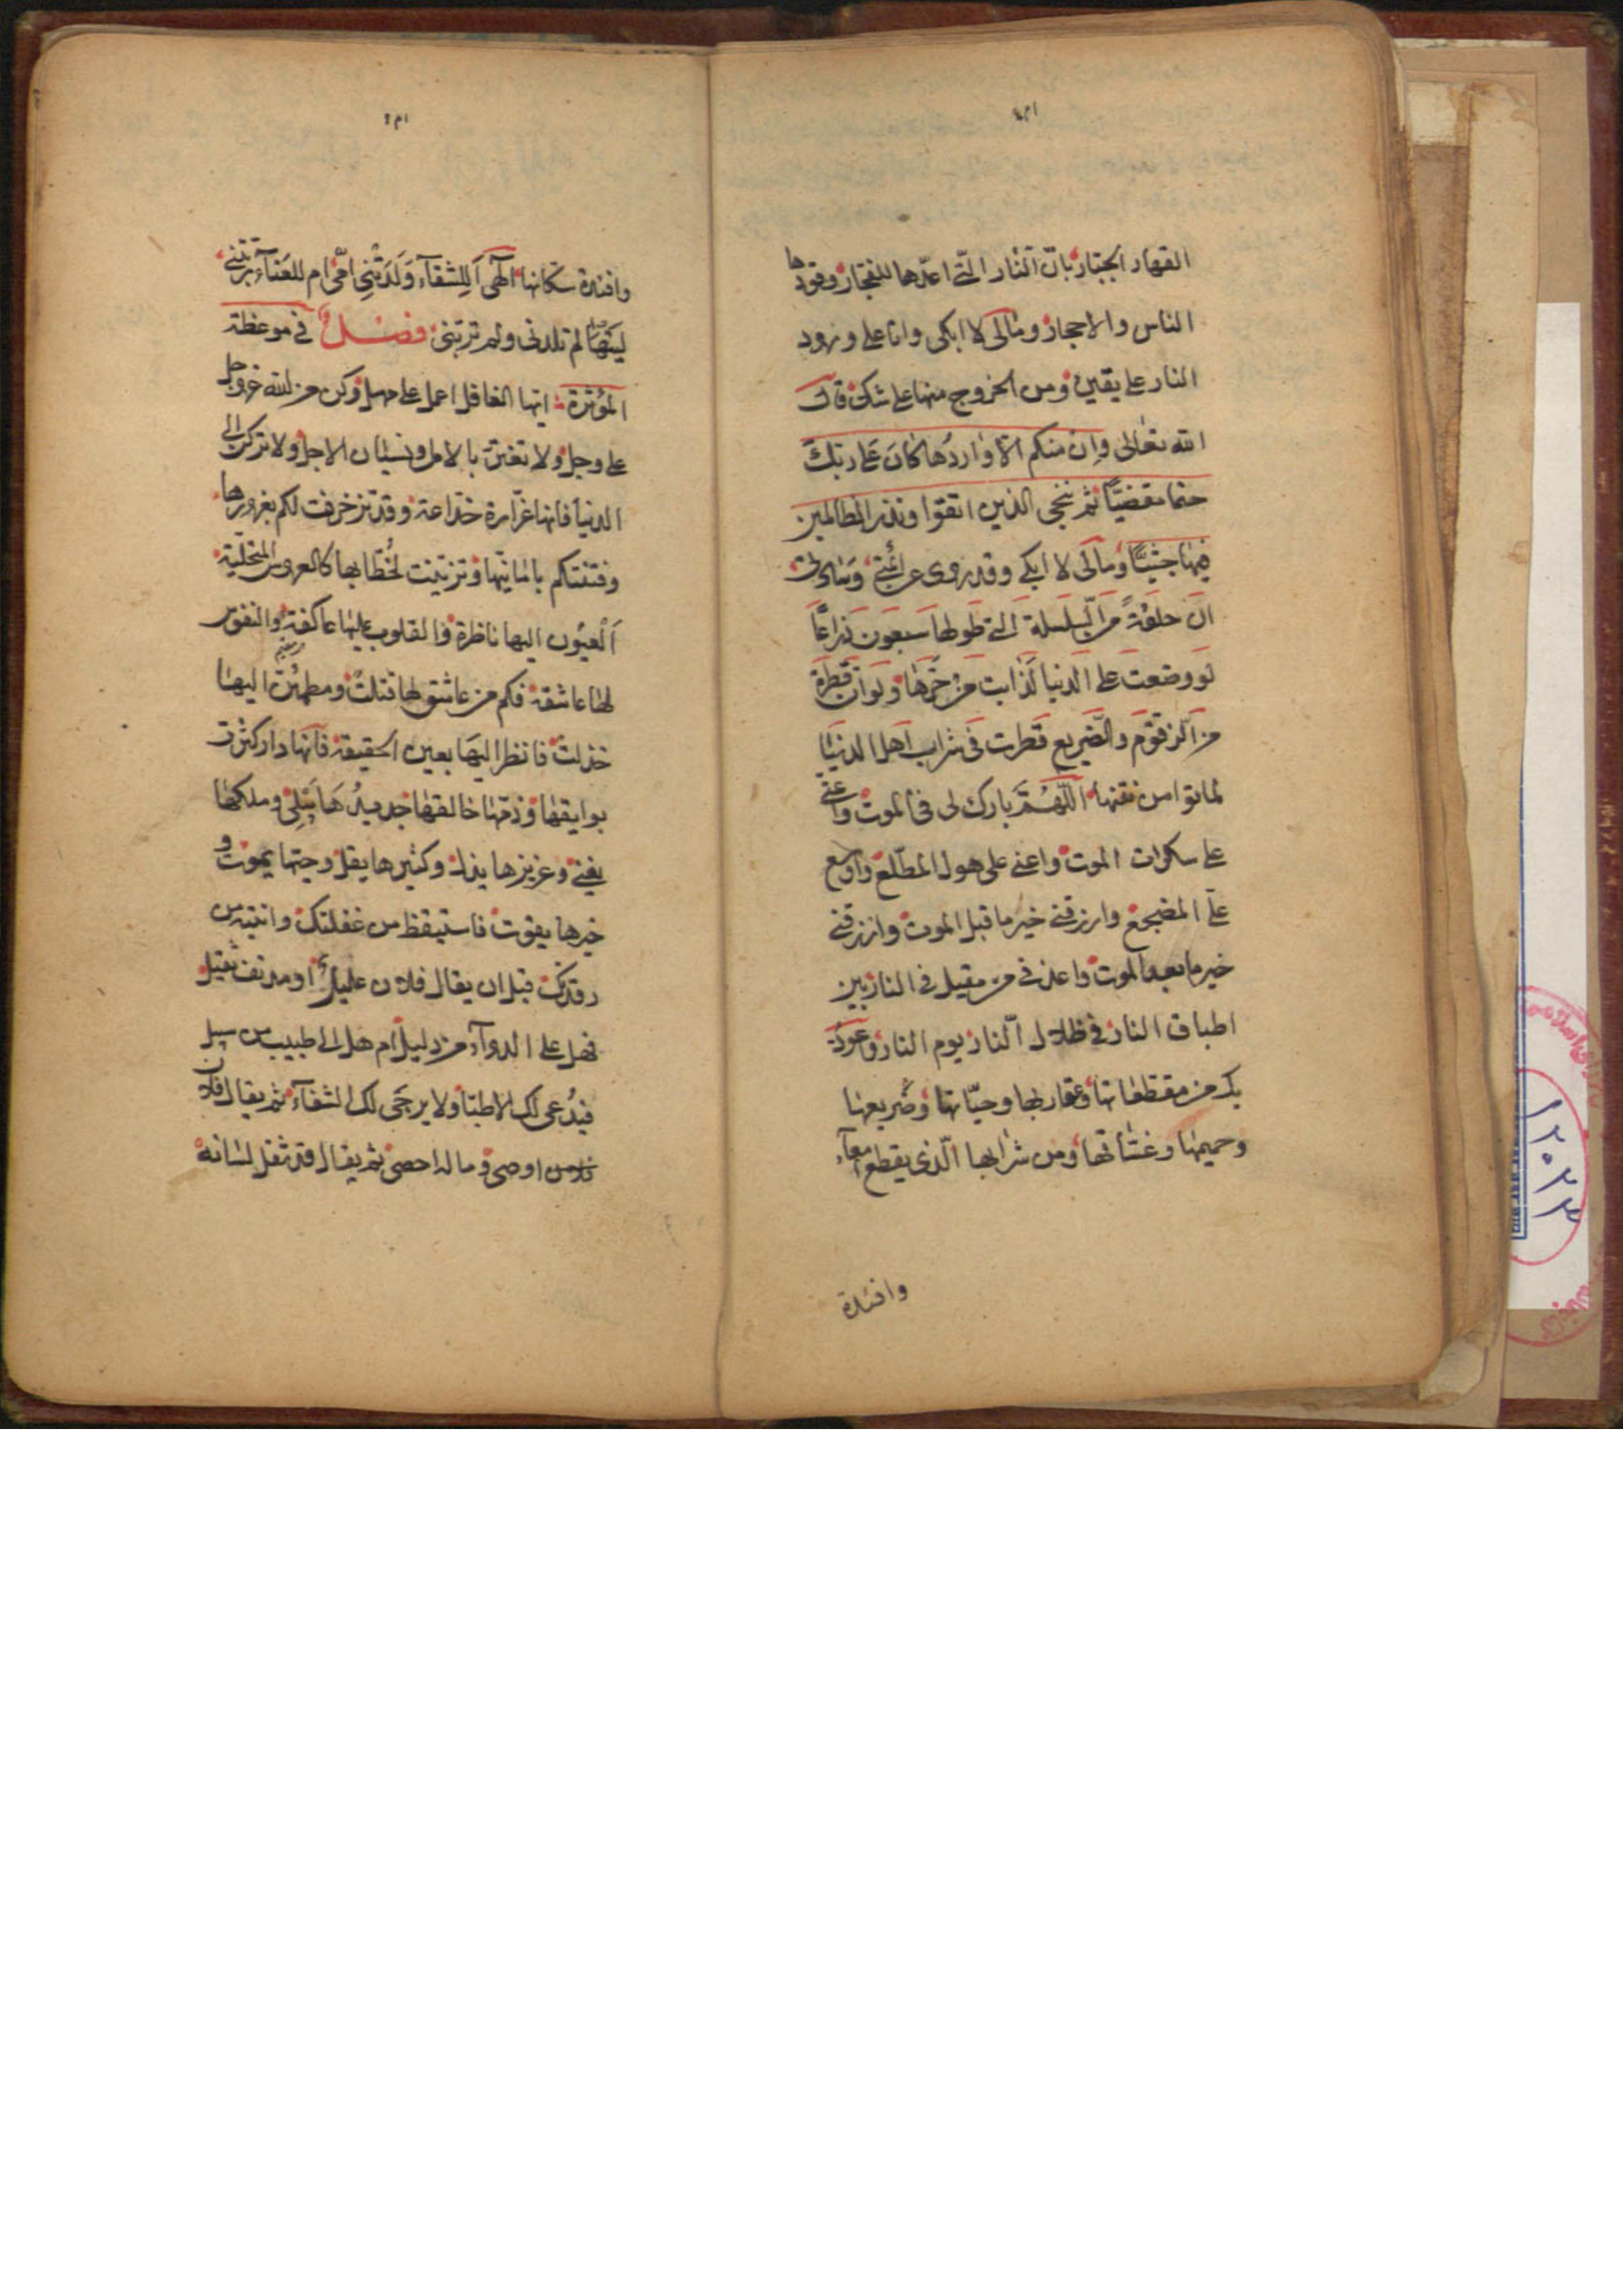 القهار الجبار بان النار التي اعدها للفجار وقودها
الناس والاحجار ومالى لا ابكى وانا على ورود
النار على يقين ومن الخروج منها على شك قال
الله تعالى وان منكم الا واردها كان على ربك
حتما مقضيّا ثم ننجى الذين اتقوا ونذر الظالمين
فيها جثيّا ومالى لا ابكى وقد روى عن ائمتى وساداتى
ان حلقة من السلسلة التى طولها سبعون ذراعًا
لو وضعت على الدنيا لذابت من حرها ولو ان قطرة
من الزقوم والضريع قطرت فى شراب اهل الدنيا
لماتوا من نتنها اللّهمّ بارك لى فى الموت واعنى
على سكرات الموت واعنى على هول المطّلع واوسع
علىّ المضجع وارزقنى خير ما قبل الموت وارزقنى
خير ما بعد الموت واعذنى من مقيل فى النار بين
اطباق النار فى ظلال النار يوم النار واعوذ
بك من مقطعاتها وعقاربها وحيّاتها وضريعها
وحميمها وغسّاقها ومن شرابها الّذى يقطع امعآء
وافئدة
وافئدة سكانها الهى اَللِشقآء وَلَدَتْنِى امّى ام للعَنآء ربّتنى
ليتها لم تلدنى ولم تربّنى فصل فى موعظة
المؤثرة ايها الغافل اعمل على مهل وكن من الله عز وجل
على وجل ولا تغتر بالامل ونسيان الاجل ولا تركن الى
الدنيا فانها غرّارة خدّاعة وقد تزخرفت لكم بغرورها
وفتنتكم بامانيها وتزينت لخُطّابها كالعروس المتحلّية
اَلْعيُون اليها ناظرة والقلوب عليها عاكفة والنفوس
لها عاشقة فكم من عاشق لها قتلت ومطمئن اليها
خذلت فانظر اليها بعين الحقيقة فانها دار كثرت
بوايقها وذمّها خالقها جديدُها يَبلِى وملكها
يفنى وعزيزها يذل وكثيرها يقل وحيّها يموت و
خيرها يفوت فاستيقظ من غفلتك وانتبه من
رقدتك قبل ان يقال فلان عليل او مدنف ثقيل
فهل على الدوآء من دليل ام هل الى طبيب من سبيل
فيدُعى لك الاطبّا ولا يرجَى لك الشفآء ثم يقال فلان
اوصى وماله احصى ثم يقال قد ثقل لسانه
۱۲۰۲۳